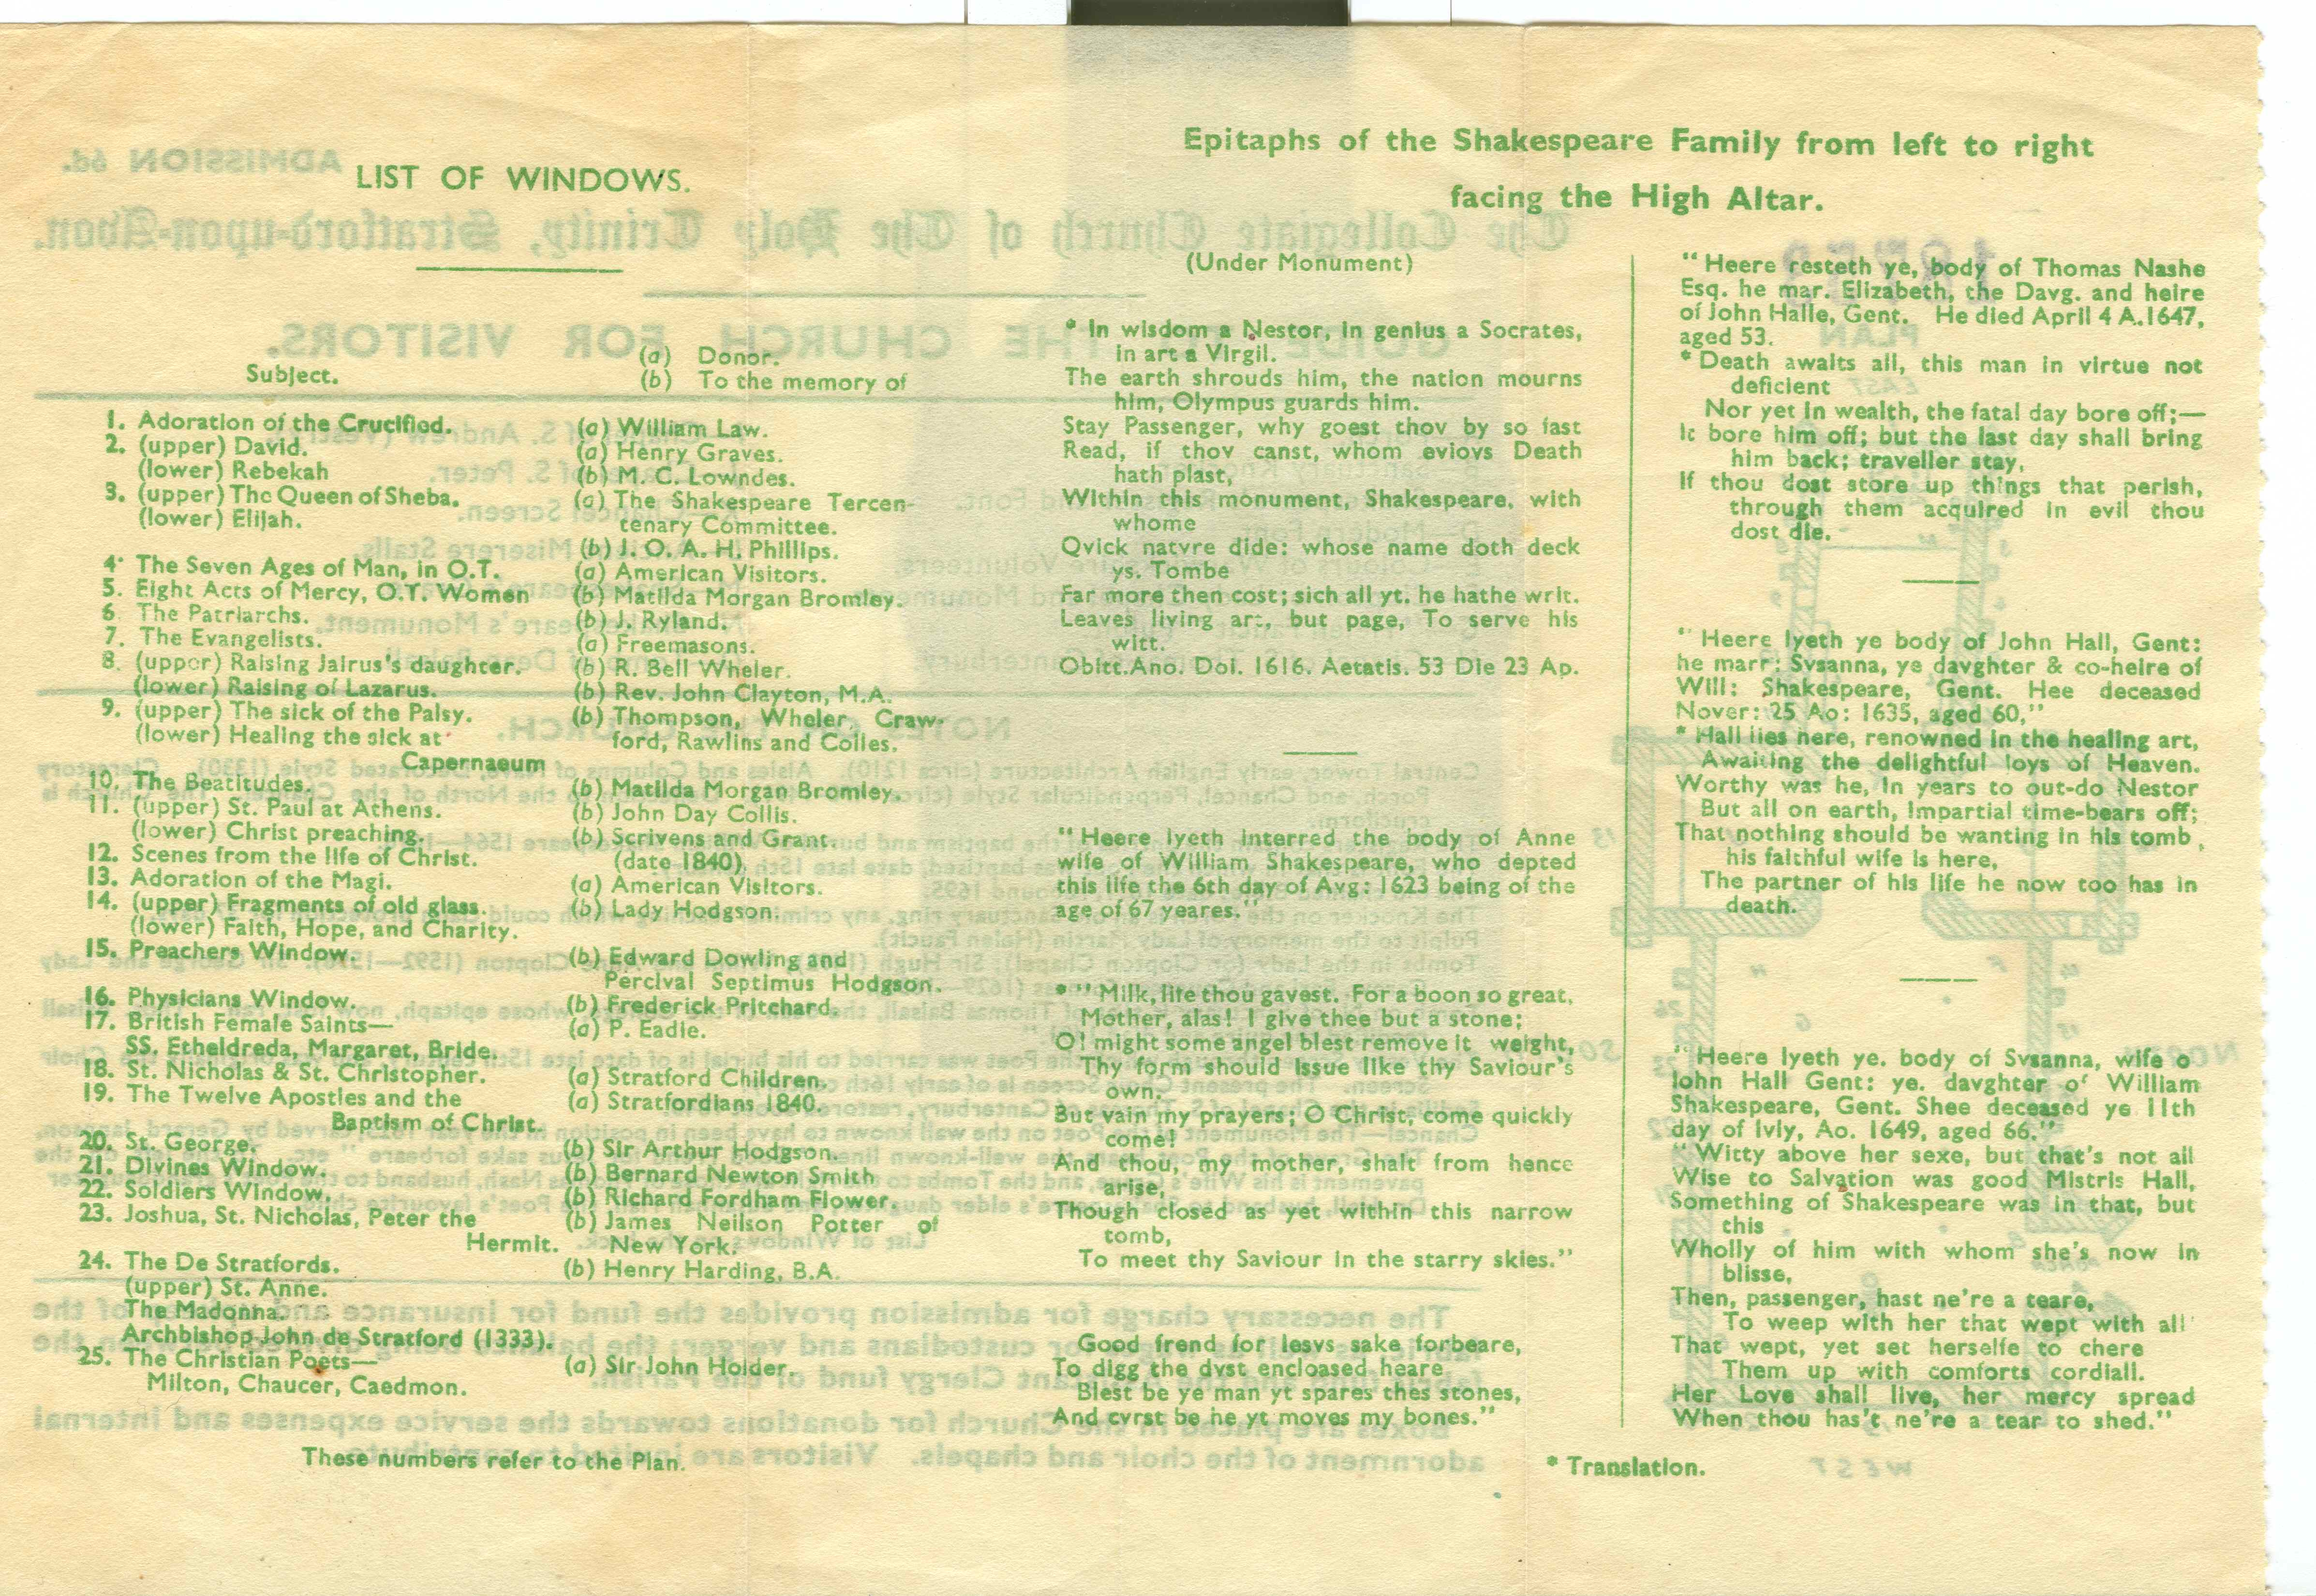 LIST OF WINDOWS.
Subject.
(a) Donor.
(b) To the memory of
1. Adoration of the Crucified.
2. (upper) David.
(lower) Rebekah
3. (upper) The Queen of Sheba.
(lower) Elijah.
4. The Seven Ages of Man, in O.T.
5. Eight Acts of Mercy, O.T. Women
6. The Patriarchs.
7. The Evangelists.
8. (upper) Raising Jairus's daughter.
(lower) Raising of Lazarus.
9. (upper) The sick of the Palsy.
(lower) Healing the sick at
Capernaeum
10. The Beatitudes.
11. (upper) St. Paul at Athens.
(lower) Christ preaching.
12. Scenes from the life of Christ.
13. Adoration of the Magi.
14. (upper) Fragments of old glass.
(lower) Faith, Hope, and Charity.
15. Preachers Window.
16. Physicians Window.
17. British Female Saints—
SS. Etheldreda, Margaret, Bride.
18. St. Nicholas & St. Christopher.
19. The Twelve Apostles and the
Baptism of Christ.
20. St. George.
21. Divines Window.
22. Soldiers Window.
23. Joshua, St. Nicholas, Peter the
Hermit.
24. The De Stratfords.
(upper) St. Anne.
The Madonna.
Archbishop John de Stratford (1333).
25. The Christian Poets—
Milton, Chaucer, Caedmon.
(a) William Law.
(a) Henry Graves.
(b) M. C. Lowndes.
(a) The Shakespeare Tercen-
tenary Committee.
(b) J. O. A. H. Phillips.
(a) American Visitors.
(b) Matilda Morgan Bromley.
(b) J. Ryland.
(a) Freemasons.
(b) R. Bell Wheler.
(b) Rev. John Clayton, M.A.
(b) Thompson, Wheler, Craw-
ford, Rawlins and Colles.
(b) Matilda Morgan Bromley.
(b) John Day Collis.
(b) Scrivens and Grant.
(date 1840).
(a) American Visitors.
(b) Lady Hodgson.
(b) Edward Dowling and
Percival Septimus Hodgson.
(b) Frederick Pritchard.
(a) P. Eadie.
(a) Stratford Children.
(a) Stratfordians 1840.
(b) Sir Arthur Hodgson.
(b) Bernard Newton Smith
(b) Richard Fordham Flower.
(b) James Neilson Potter of
New York.
(b) Henry Harding, B.A.
(a) Sir John Holder.
These numbers refer to the Plan.
Epitaphs of the Shakespeare Family from left to right
facing the High Altar.
(Under Monument)
* In wisdom a Nestor, in genius a Socrates,
in art a Virgil.
The earth shrouds him, the nation mourns
him, Olympus guards him.
Stay Passenger, why goest thov by so fast
Read, if thov canst, whom eviovs Death
hath plast,
Within this monument, Shakespeare, with
whome
Qvick natvre dide: whose name doth deck
ys. Tombe
Far more then cost; sich all yt. he hathe writ.
Leaves living art, but page, To serve his
witt.
Obitt.Ano. Doi. 1616. Aetatis. 53 Die 23 Ap.
"Heere lyeth interred the body of Anne
wife of William Shakespeare, who depted
this life the 6th day of Avg: 1623 being of the
age of 67 yeares."
* "Milk, life thou gavest. For a boon so great,
Mother, alas! I give thee but a stone;
O! might some angel blest remove it weight,
Thy form should issue like thy Saviour's
own.
But vain my prayers; O Christ, come quickly
come!
And thou, my mother, shalt from hence
arise,
Though closed as yet within this narrow
tomb,
To meet thy Saviour in the starry skies."
Good frend for Iesvs sake forbeare,
To digg the dvst encloased heare
Blest be ye man yt spares thes stones,
And cvrst be he yt moves my bones."
"Heere resteth ye, body of Thomas Nashe
Esq. he mar. Elizabeth, the Davg. and heire
of John Halle, Gent. He died April 4 A.1647,
aged 53.
* Death awaits all, this man in virtue not
deficient
Nor yet in wealth, the fatal day bore off;—
It bore him off; but the last day shall bring
him back; traveller stay,
If thou dost store up things that perish,
through them acquired in evil thou
dost die.
"Heere lyeth ye body of John Hall, Gent:
he marr: Svsanna, ye davghter & co-heire of
Will: Shakespeare, Gent. Hee deceased
Nover: 25 Ao: 1635, aged 60,"
* Hall lies here, renowned in the healing art,
Awaiting the delightful joys of Heaven.
Worthy was he, in years to out-do Nestor
But all on earth, impartial time-bears off;
That nothing should be wanting in his tomb,
his faithful wife is here,
The partner of his life he now too has in
death.
"Heere lyeth ye. body of Svsanna, wife o
Iohn Hall Gent: ye. davghter of William
Shakespeare, Gent. Shee deceased ye 11th
day of Ivly, Ao. 1649, aged 66."
"Witty above her sexe, but that's not all
Wise to Salvation was good Mistris Hall,
Something of Shakespeare was in that, but
this
Wholly of him with whom she's now in
blisse,
Then, passenger, hast ne're a teare,
To weep with her that wept with all
That wept, yet set herselfe to chere
Them up with comforts cordiall.
Her Love shall live, her mercy spread
When thou has't ne're a tear to shed."
* Translation.